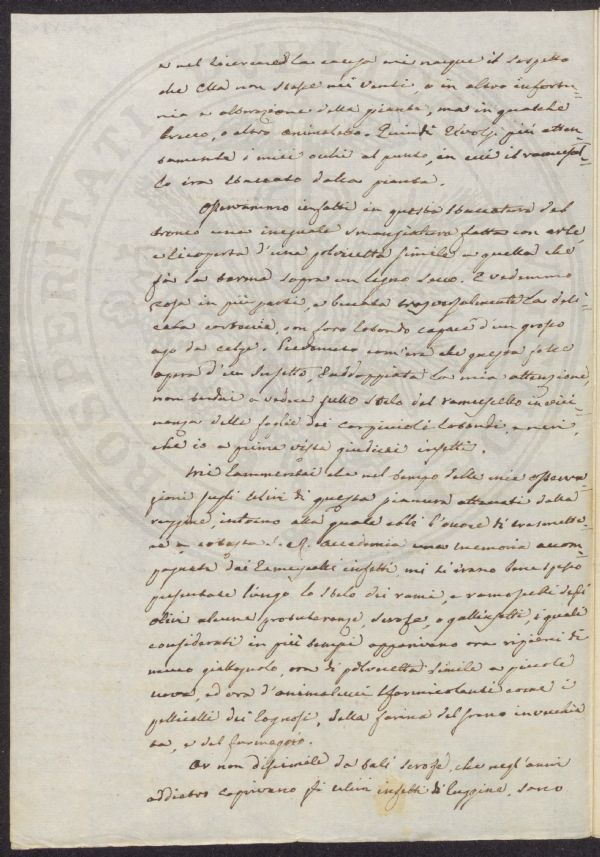 e nel ricercarne la causa mi nacque il sospetto
che Ella non stasse nei venti, o in altro infortu=
nio e alterazione della pianta, ma in qualche
bruco, o altro animaletto. Quindi rivolsi più atten=
tamente i miei occhi al punto, in cui il ramoscel=
lo era staccato dalla pianta.
Osservammo infatti in questa staccatura del
tronco una ineguale smangiatura fatta con arte
e ricoperta d'una polveretta simile a quella che
fà la tarma sopra un legno secco. E vedemmo
rosa in più parti, e bucata trasversalmente la deli=
cata corteccia, con foro tondo capace d'un grosso
ago da calze. Piedemmo com'era che questa fosse
opera d'un Insetto, raddoppiata la mia attenzione,
non tardai a vedere sullo stelo del ramoscello in vici=
nanza delle foglie dei corpiccioli tondi, e neri,
che io a prima vista giudicai insetti.
Mi rammentai che nel tempo delle mie osserva=
zioni sugli ulivi di questa pianura attaccati dalla
ruggine, intorno alla quale ebbi l'onore di trasmette=
re a cotesta I. e R. Accademia una memoria accom=
pagnata dai ramoscelli infetti, mi si erano bene spesso
presentate lungo lo stelo dei rami, e ramoscelli degli
olivi alcune protuberanze, scrofe, o gallinsetti, i quali
considerati in più tempi apparivano ora ripieni di
muco giallognolo, ora di polveretta simile a piccole
uova, ed ora d'animalucci sformicolanti come i
pellicelli dei rognosi, della farina del grano invecchia
ta, e del formaggio.
Or non dissimile da tali scrofe, che negl'anni
addietro coprivano gli ulivi infetti di ruggine, sono